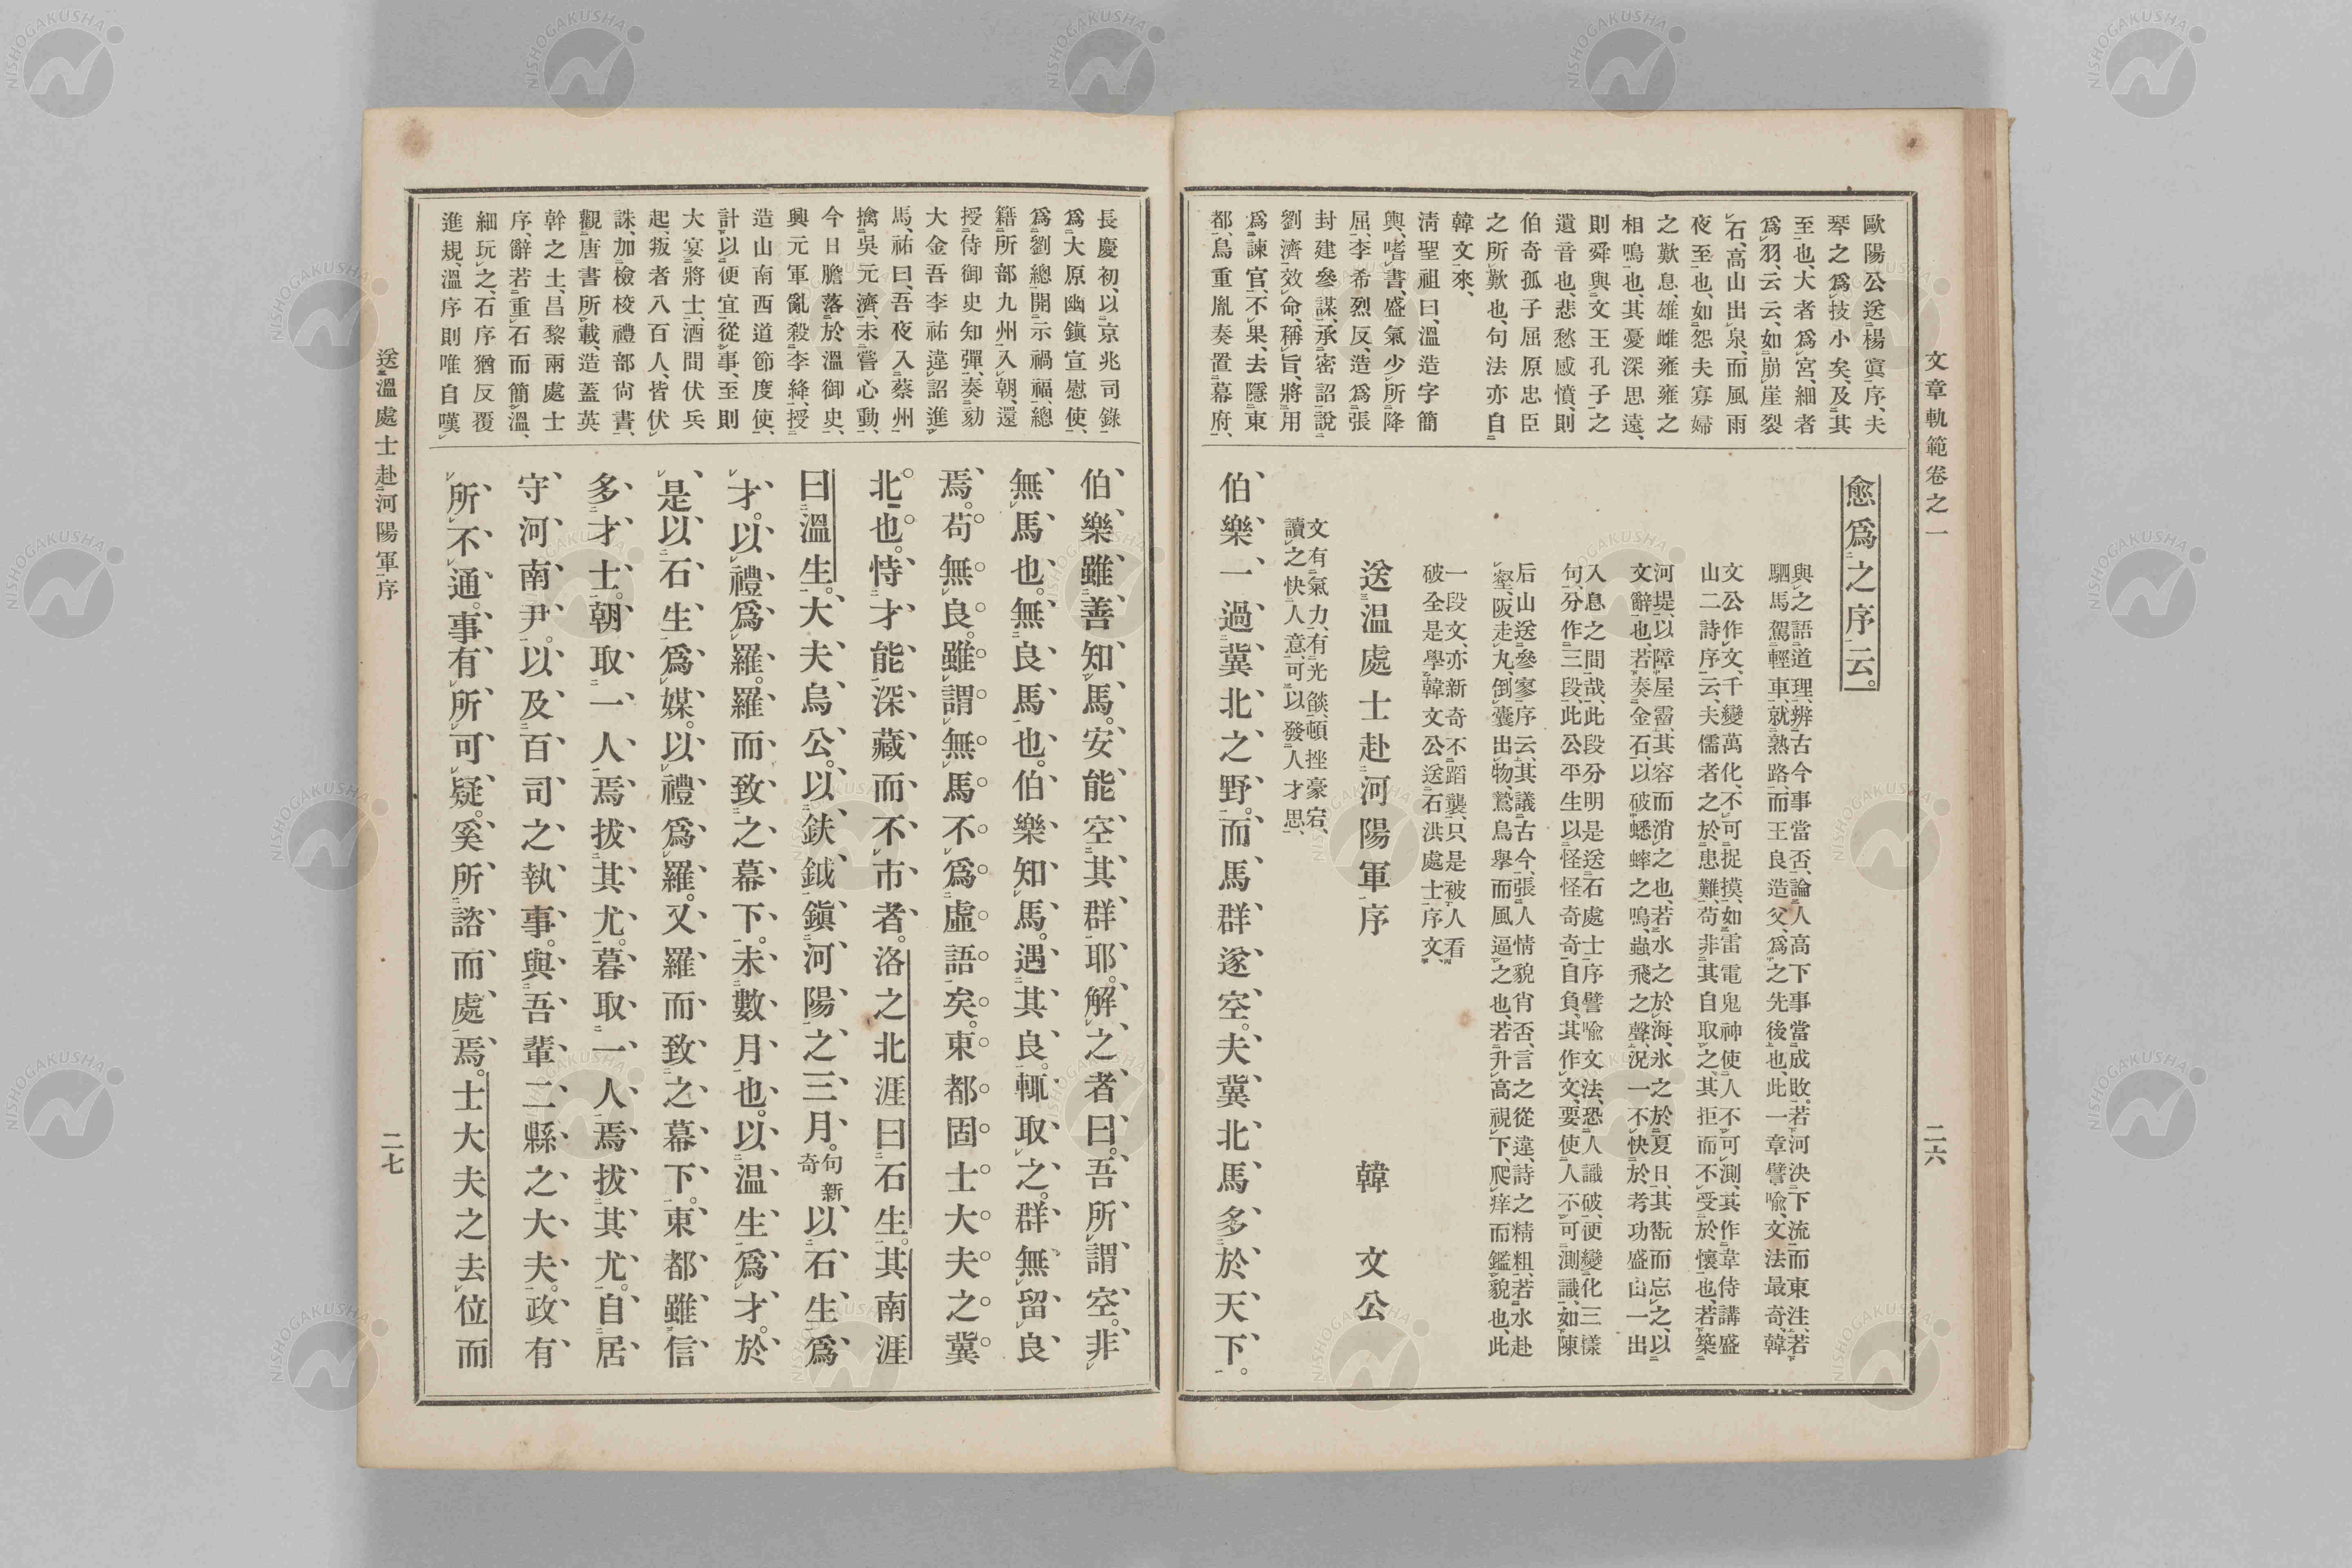 文章軌範卷之一
二六
歐陽公送楊寘序、夫
琴之爲技小矣、及其
至也、大者爲宮、細者
爲羽、云云、如崩崖裂
石、高山出泉、而風雨
夜至也、如怨夫寡婦
之歎息、雄雌雍雍之
相鳴也、其憂深思遠、
則舜與文王孔子之
遺音也、悲愁感憤、則
伯奇孤子屈原忠臣
之所歎也、句法亦自
韓文來、
淸聖祖曰、溫造字簡
輿、嗜書、盛氣少所降
屈、李希烈反、造爲張
封建參謀、承密詔說
劉濟效命、稱旨、將用
爲諫官、不果、去隱東
都、烏重胤奏置幕府、
愈爲之序云。
與之語道理、辨古今事當否、論人高下事當成敗。若河決下流而東注、若
駟馬駕輕車、就熟路、而王良造父、爲之先後也、此一章譬喩、文法最奇、韓
文公作文、千變萬化、不可捉摸、如雷電鬼神使人不可測、其作韋侍講盛
山二詩序云、夫儒者之於患難、苟非其自取之、其拒而不受於懷也、若築
河堤、以障屋霤、其容而消之也、若水之於海、氷之於夏日、其翫而忘之、以
文辭也、若奏金石、以破蟋蟀之鳴、蟲飛之聲、況一不快於考功盛山一出
入息之間哉、此段分明是送石處士序譬喩文法、恐人識破、便變化三樣
句、分作三段、此公平生以怪怪奇奇自負、其作文、要使人不可測識、如陳
后山送參寥序云、其議古今、張人情貌肖否、言之從違、詩之精粗、若水赴
壑、阪走丸、倒囊出物、鷙鳥擧而風逼之也、若升高視下、爬痒而鑑貌也、此
一段文、亦新奇不蹈襲、只是被人看
破全是學韓文公送石洪處士序文、
送温處士赴河陽軍序　韓文公
文有氣力、有光燄、頓挫豪宕、
讀之快人意、可以發人才思、
伯樂一過冀北之野。而馬群遂空。夫冀北馬多於天下。
長慶初、以京兆司錄
爲大原幽鎭宣慰使、
爲劉總、開示禍福、總
籍所部九州、入朝、還
授侍御史知彈、奏劾
大金吾李祐違詔進
馬、祐曰、吾夜入蔡州
擒吳元濟、未嘗心動、
今日膽落於溫御史、
興元軍亂、殺李絳、授
造山南西道節度使、
計以便宜從事、至則
大宴將士、酒間伏兵
起、叛者八百人、皆伏
誅、加檢校禮部尙書、
觀唐書所載、造蓋英
幹之士、昌黎兩處士
序、辭若重石而簡溫、
細玩之、石序猶反覆
進規、溫序則唯自嘆
伯樂雖善知馬。安能空其群耶。解之者曰。吾所謂空。非
無馬也。無良馬也。伯樂知馬。遇其良。輒取之。群無留良
焉。苟無良。雖謂無馬不爲虛語矣。東都固士大夫之冀
北也。恃才能深藏而不市者。洛之北涯曰石生。其南涯
曰溫生。大夫烏公。以鈇鉞鎭河陽之三月。句新奇以石生爲
才。以禮爲羅。羅而致之幕下。未數月也。以温生爲才。於
是以石生爲媒。以禮爲羅。又羅而致之幕下。東都雖信
多才士。朝取一人焉拔其尤。暮取一人焉拔其尤。自居
守河南尹。以及百司之執事。與吾輩二縣之大夫。政有
所不通。事有所可疑。奚所諮而處焉。士大夫之去位而
送溫處士赴河陽軍序
二七